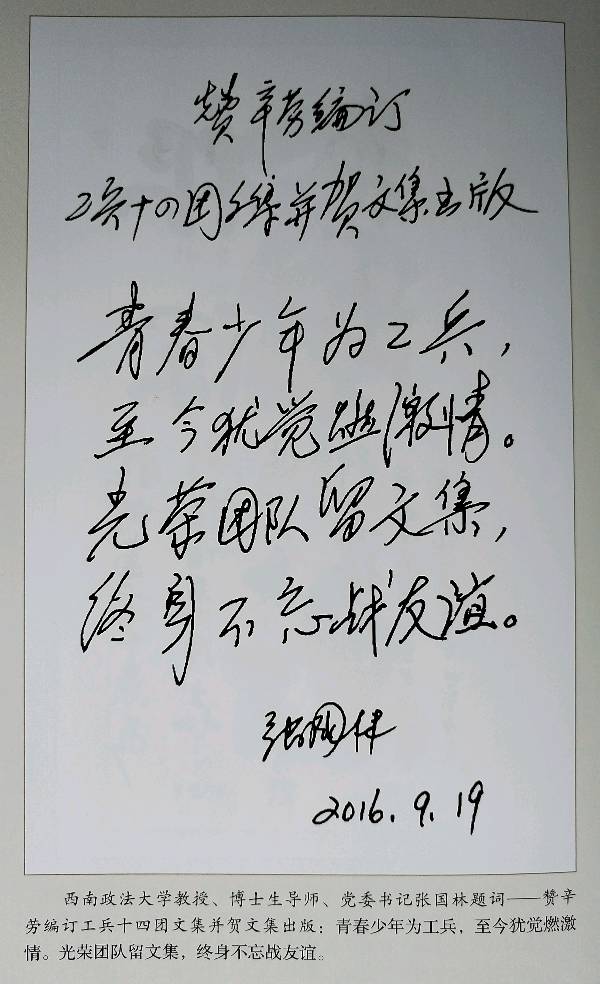 赞辛劳编订
工兵十四团文集并贺文集出版
青春少年为工兵，
至今犹觉燃激情。
光荣团队留文集，
终身不忘战友谊。
张国林
2016.9.19
西南政法大学教授、博士生导师、党委书记张国林题词——赞辛
劳编订工兵十四团文集并贺文集出版：青春少年为工兵，至今犹觉燃激
情。光荣团队留文集，终身不忘战友谊。